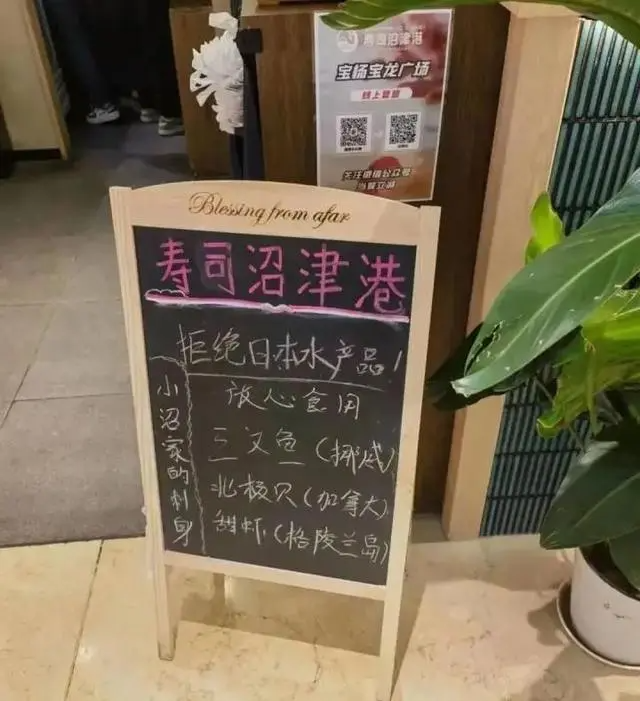 寿司沼津港
宝杨宝龙广场
线上登盟
关注微信公众号
Blessing from afar
寿司沼津港
拒绝日本水产品!
小沼家的刺身
放心食用
三文鱼(挪威)
北极贝(加拿大)
甜虾(格陵兰岛)